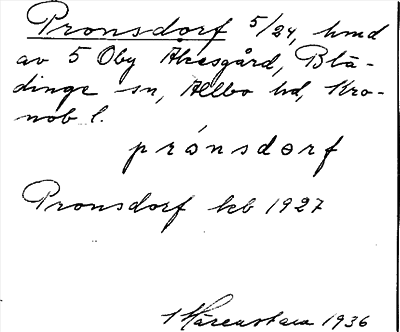 Pronsdorf 5/24, hmd
av 5 Oby Åkesgård, Blä-
dinge sn, Allbo hd, Kro-
nob l.
prónsdorf
Pronsdorf kb 1927
1936